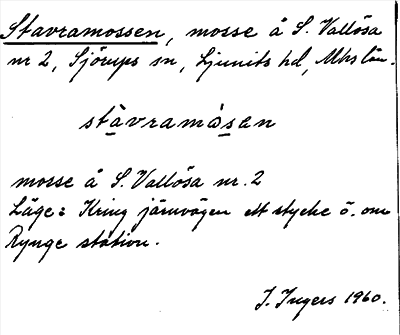 Stavramossen, mosse å S. Vallösa
nr 2, Sjörups sn, Ljunits hd, Mhs län.
stàvramòsen
mosse å S. Vallösa nr. 2
Läge: Kring järnvägen ett stycke ö. om
Rynge station.
I. Ingers 1960.